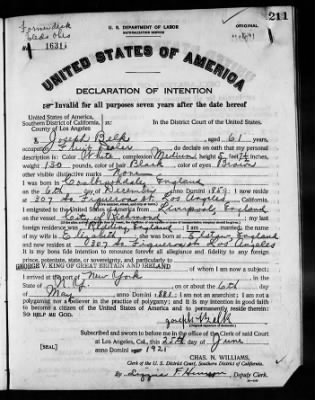 211
U. S. DEPARTMENT OF LABOR
NATURALIZATION SERVICE
ORIGINAL
No. 1631
UNITED STATES OF AMERICA
DECLARATION OF INTENTION
Invalid for all purposes seven years after the date hereof
United States of America,
Southern District of California,
County of Los Angeles
In the District Court of the United States.
I, Joseph Belk, aged 61 years,
occupation Fruit Dealer, do declare on oath that my personal
description is: Color White, complexion Medium, height 5 feet inches,
weight 130 pounds, color of hair Black, color of eyes Brown
other visible distinctive marks None
I was born in England
on the 6th day of December, anno Domini 1859; I now reside
at 307 So Figueroa St, Los Angeles, California.
I emigrated to the United States of America from Liverpool, England
on the vessel City of Richmond; my last
foreign residence was England; I am married; the name
of my wife is Elizabeth; she was born in England
and now resides at 307 So Figueroa St Los Angeles
It is my bona fide intention to renounce forever all allegiance and fidelity to any foreign
prince, potentate, state, or sovereignty, and particularly to
GEORGE V, KING OF GREAT BRITAIN AND IRELAND, of whom I am now a subject;
I arrived at the port of New York, in the
State of N.Y., on or about the 6th day
of May, anno Domini 1881; I am not an anarchist; I am not a
polygamist nor a believer in the practice of polygamy; and it is my intention in good faith
to become a citizen of the United States of America and to permanently reside therein:
SO HELP ME GOD.
Joseph Belk
Subscribed and sworn to before me in the office of the Clerk of said Court
at Los Angeles, Cal., this 25th day of June
anno Domini 1921
[SEAL]
CHAS. N. WILLIAMS,
Clerk of the U. S. District Court, Southern District of California.
By, Deputy Clerk.